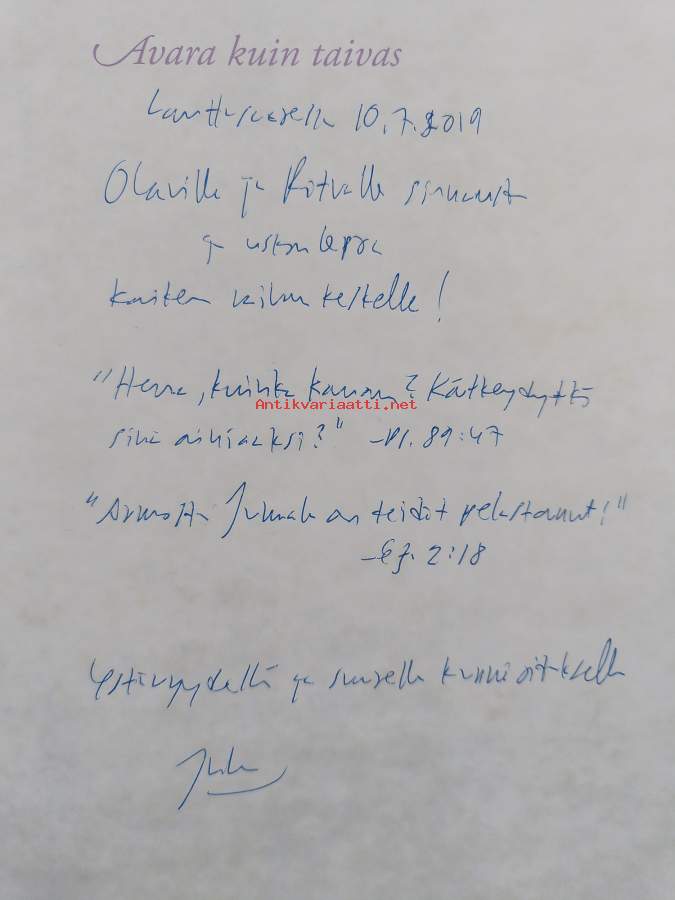 Avara kuin taivas
Lauttasaarella 10.7.2019
Olaville ja Ritvalle siunausta
ja uskon lepoa
kaiken vaivan keskelle!
"Herra, kuinka kauan? Kätkeydytkö
Antikvariaatti.net
sinä ainiaaksi?" -Ps. 89:47
"Armosta Jumala on teidät pelastanut!"
-Ef. 2:18
Ystävyydellä ja suurella kunnioituksella